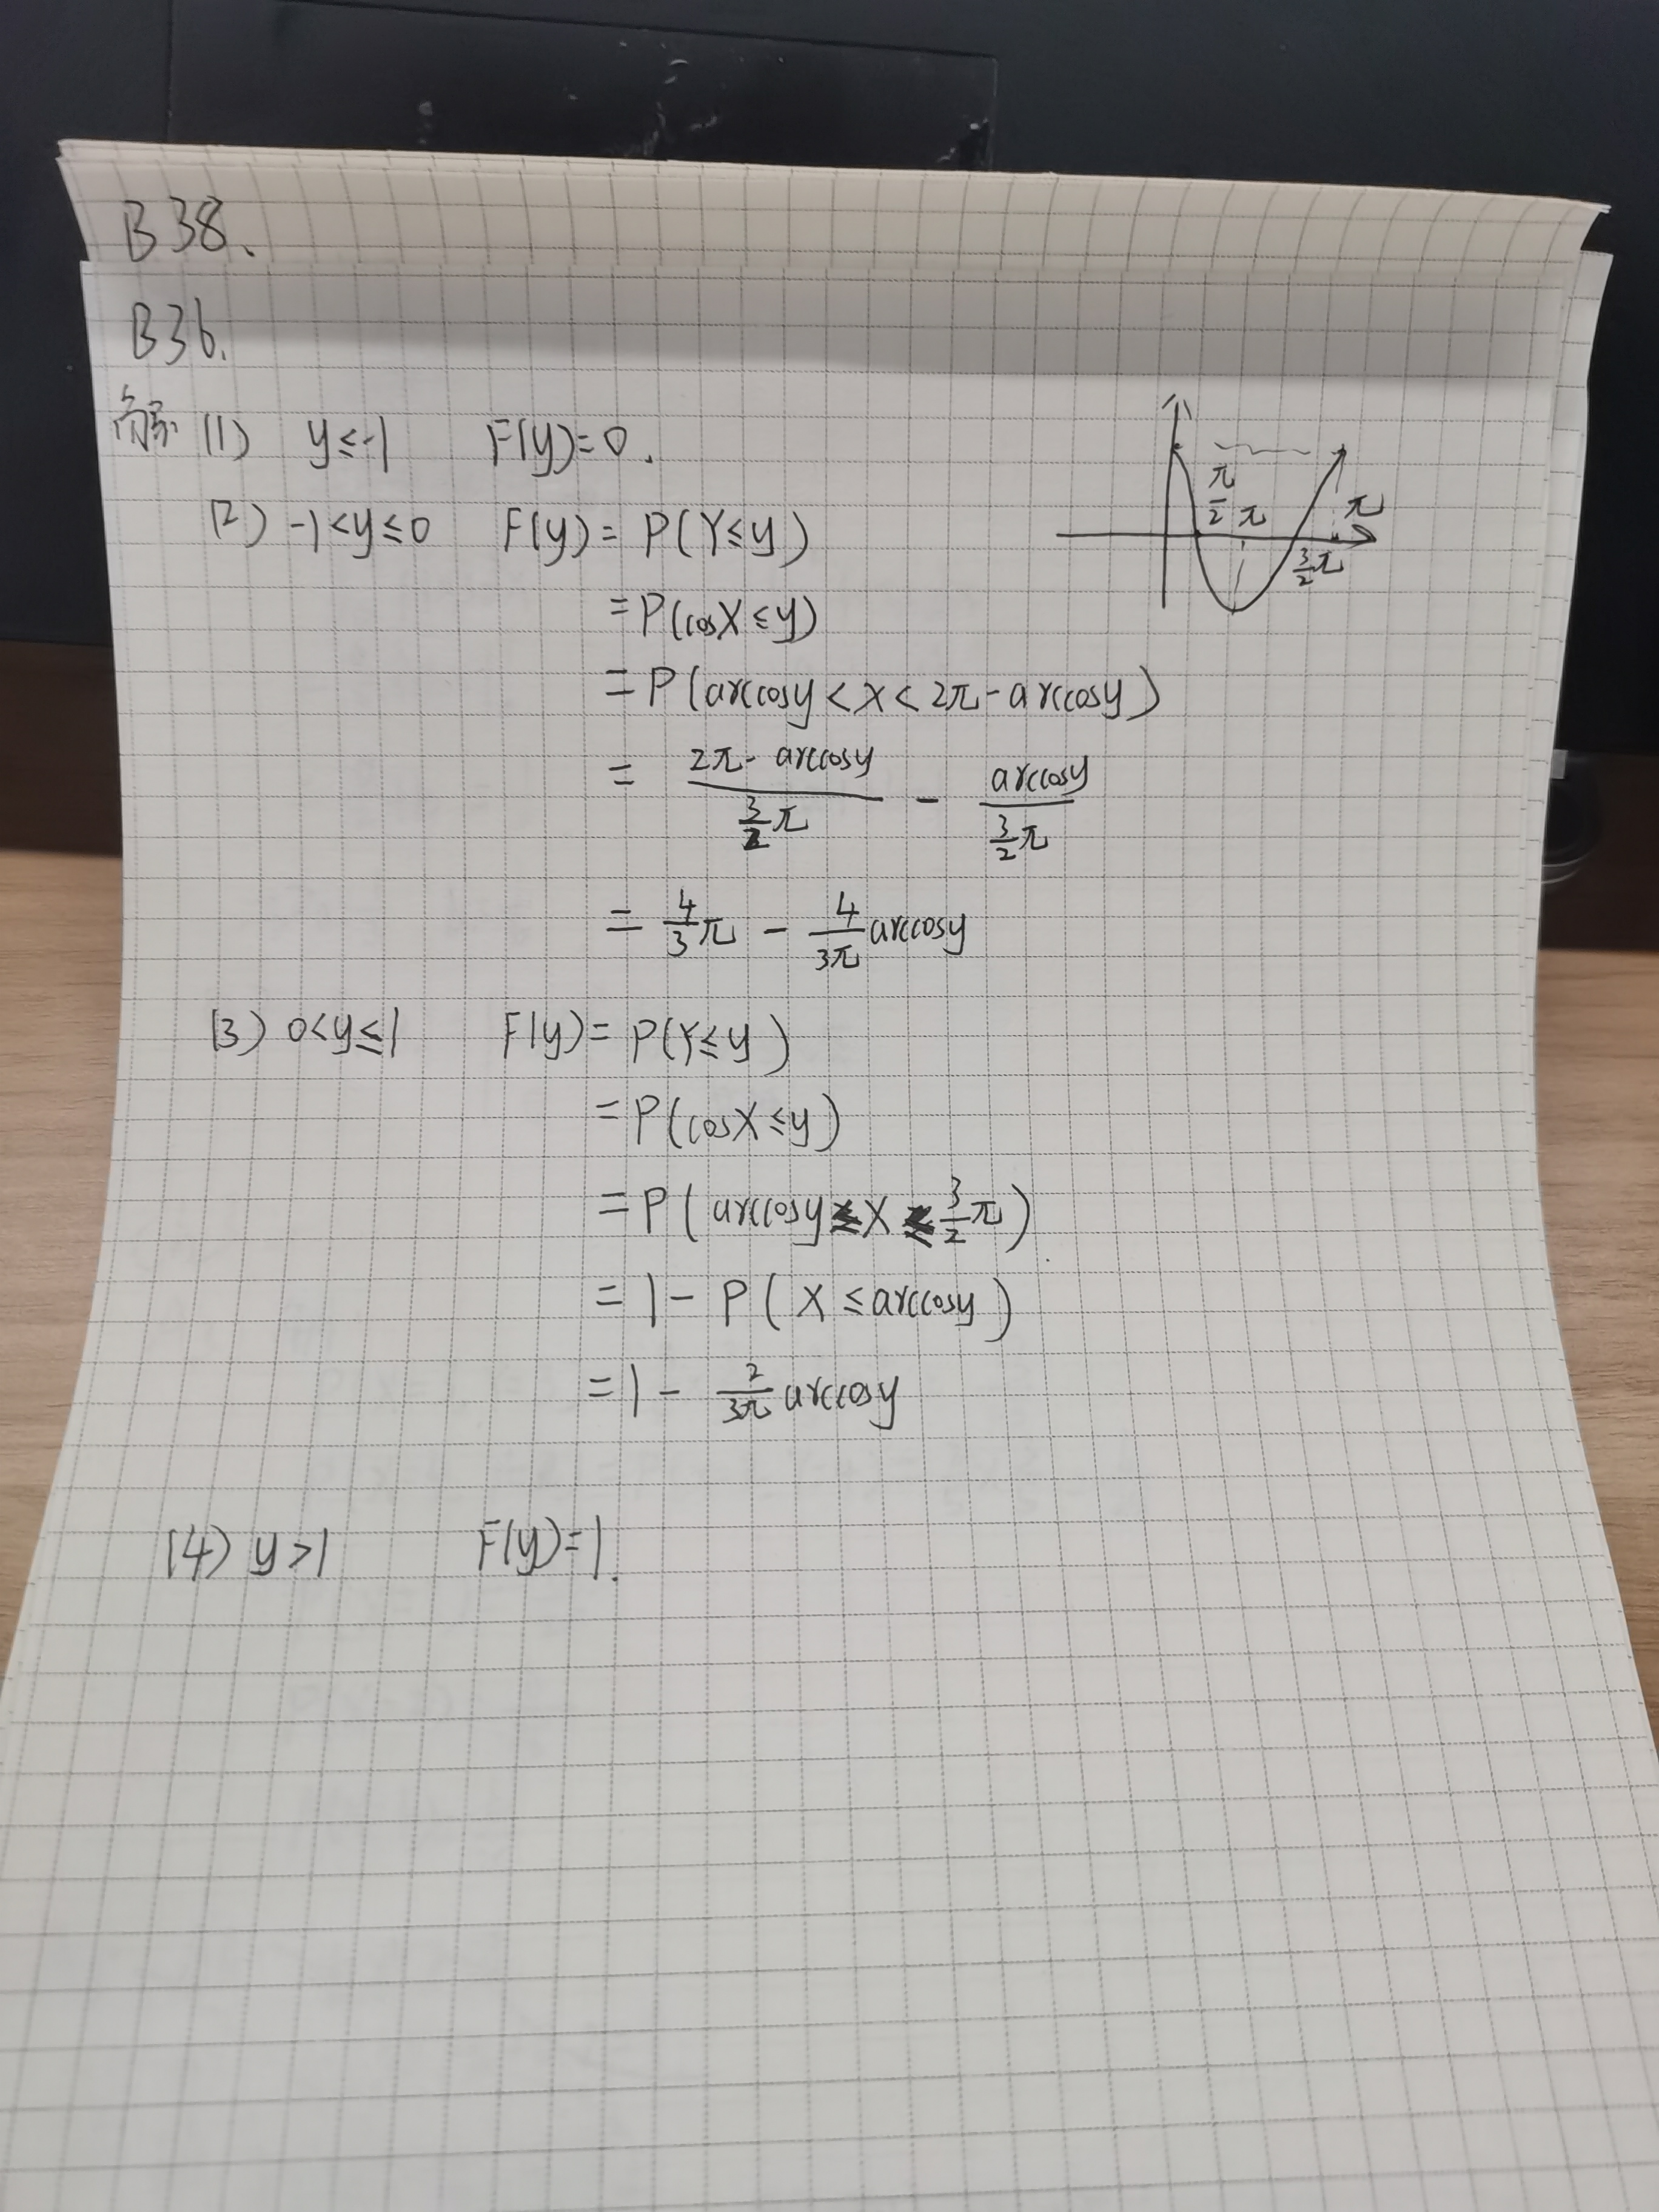 B 38.
B36.
解 (1) y≤-1 F(y)=0.
(2) -1<y≤0 F(y)= P(Y≤y)
=P(cosX≤y)
=P(arccosy<x<2π-arccosy)
= \frac{2π-arccosy}{\frac{3}{2}π} - \frac{arccosy}{\frac{3}{2}π}
= \frac{4}{3}π - \frac{4}{3π}arccosy
(3) 0<y≤1 F(y)= P(Y≤y)
=P(cosX≤y)
=P(arccosy≤X≤\frac{3}{2}π)
=1-P(X≤arccosy)
=1-\frac{2}{3π}arccosy
(4) y>1 F(y)=1.
\frac{π}{2} π \frac{3}{2}π π